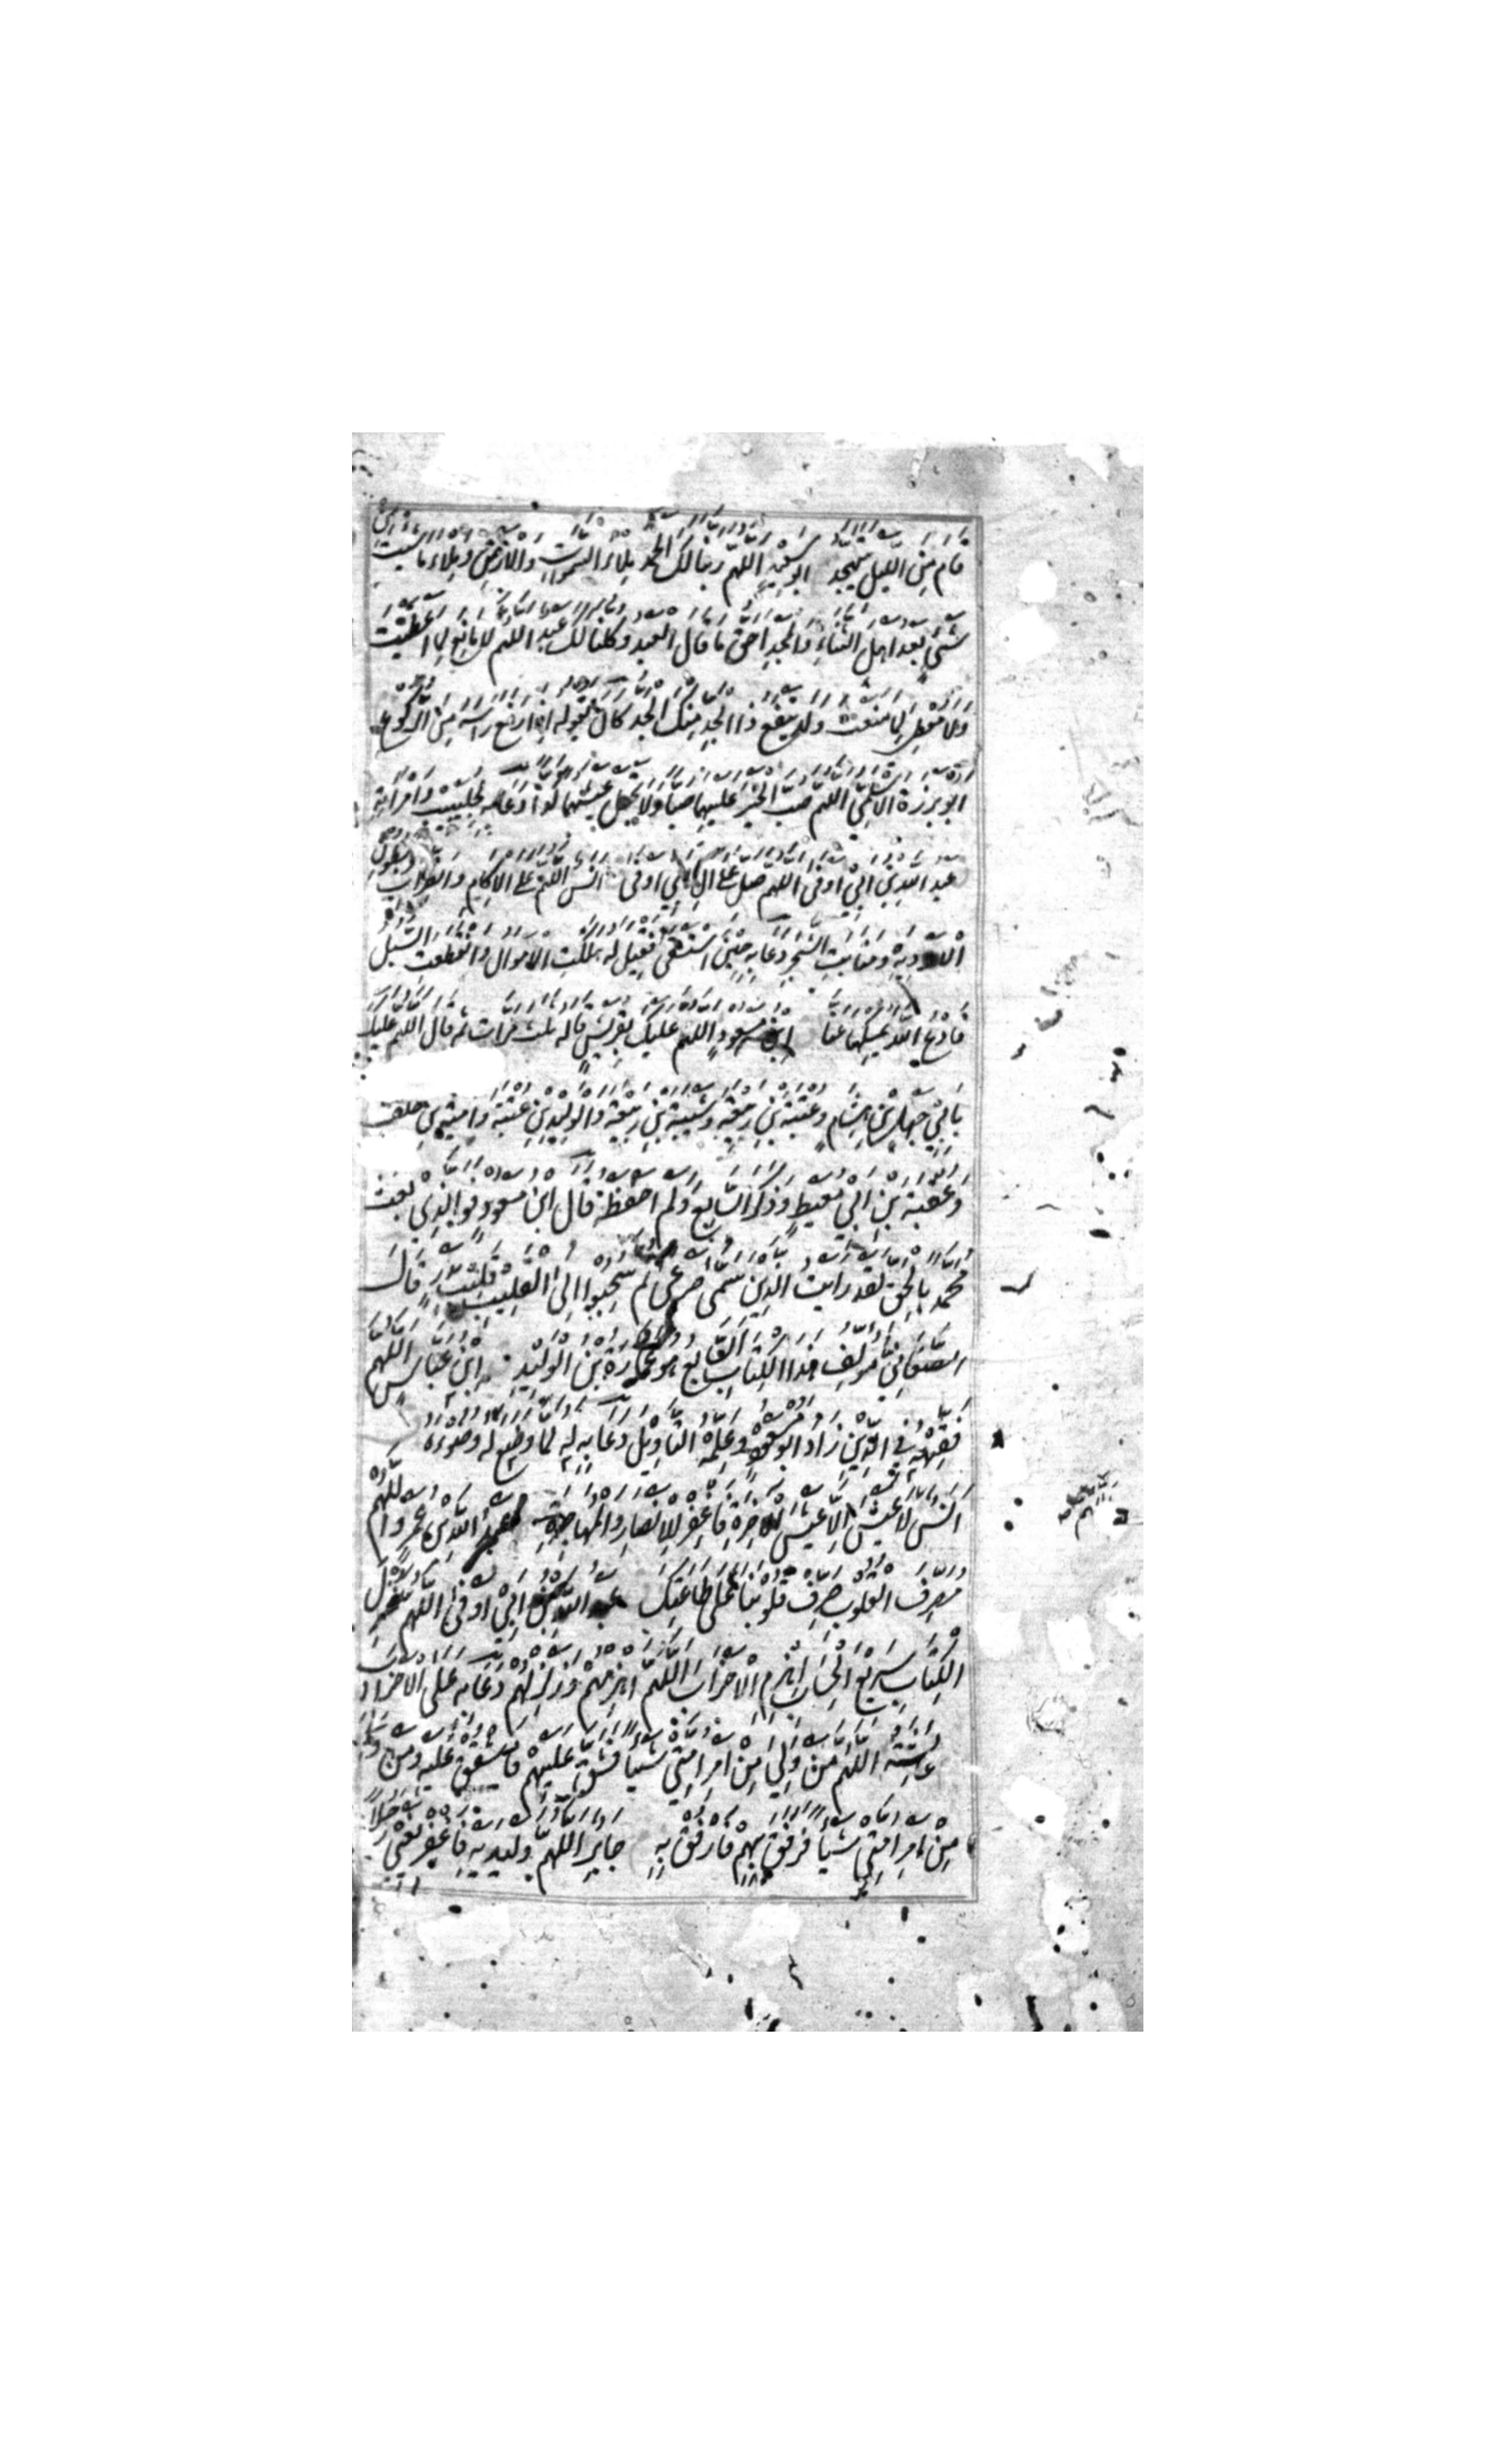 قَامَ مِنَ اللَّيْلِ يَتَهَجَّدُ ابو سَعِيْدٍ اللَّهُمَّ رَبَّنَا لَكَ الْحَمْدُ مِلْاءَ السَّمٰوَاتِ وَالْاَرْضِ وَمِلْاءَ مَا شِئْتَ مِنْ
شَيْءٍ بَعْدُ اَهْلَ الثَّنَاءِ وَالْمَجْدِ اَحَقُّ مَا قَالَ الْعَبْدُ وَكُلُّنَا لَكَ عَبْدٌ اللَّهُمَّ لَا مَانِعَ لِمَا اَعْطَيْتَ
وَلَا مُعْطِيَ لِمَا مَنَعْتَ وَلَا يَنْفَعُ ذَا الْجَدِّ مِنْكَ الْجَدُّ كَانَ يَقُوْلُهُ اِذَا رَفَعَ رَاْسَهُ مِنَ الرُّكُوْعِ
ابو بَرْزَةَ الْاَسْلَمِيُّ اللَّهُمَّ صُبَّ الْخَيْرَ عَلَيْهِمَا صَبًّا وَلَا تَجْعَلْ عَيْشَهُمَا كَدًّا دَعَا بِهِ لِجُلَيْبِيْبٍ وَامْرَاَتِهِ
عبد اللّٰه بْنُ اَبِيْ اَوْفٰى اللَّهُمَّ صَلِّ عَلٰى اٰلِ اَبِيْ اَوْفٰى اَنَسٌ اللَّهُمَّ عَلَى الْاٰكَامِ وَالظِّرَابِ وَبُطُوْنِ
الْاَوْدِيَةِ وَمَنَابِتِ الشَّجَرِ دَعَا بِهِ حِيْنَ اسْتَسْقٰى فَقِيْلَ لَهُ هَلَكَتِ الْاَمْوَالُ وَانْقَطَعَتِ السُّبُلُ
فَادْعُ اللّٰهَ يُمْسِكْهَا عَنَّا اِبْنُ مَسْعُوْدٍ اللَّهُمَّ عَلَيْكَ بِقُرَيْشٍ قَالَهُ ثلث مَرَّاتٍ ثُمَّ قَالَ اللَّهُمَّ عَلَيْكَ
بِاَبِيْ جَهْلِ بْنِ هِشَامٍ وَعُتْبَةَ بْنِ رَبِيْعَةَ وَشَيْبَةَ بْنِ رَبِيْعَةَ وَالْوَلِيْدِ بْنِ عُتْبَةَ وَاُمَيَّةَ بْنِ خلف
وَعُقْبَةَ بْنِ اَبِيْ مُعَيْطٍ وَذَكَرَ السَّابِعَ وَلَمْ اَحْفَظْهُ قَالَ ابْنُ مَسْعُوْدٍ فَوَالَّذِيْ بَعَثَ
مُحَمَّدًا بِالْحَقِّ لَقَدْ رَاَيْتُ الَّذِيْنَ سَمّٰى صَرْعٰى ثُمَّ سُحِبُوْا اِلَى الْقَلِيْبِ قَلِيْبِ بَدْرٍ قَالَ
الصَّغَانِيُّ مُؤَلِّفُ هٰذَا الْكِتَابِ السَّابِعُ هُوَ عُمَارَةُ بْنُ الْوَلِيْدِ اِبْنُ عَبَّاسٍ اللَّهُمَّ
فَقِّهْهُ فِي الدِّيْنِ زَادَ اَبُوْ مَسْعُوْدٍ وَعَلِّمْهُ التَّاْوِيْلَ دَعَا بِهِ لَهُ لَمَّا وَضَعَ لَهُ وَضُوْءَهُ
اَنَسٌ لَا عَيْشَ اِلَّا عَيْشُ الْاٰخِرَةِ فَاغْفِرْ لِلْاَنْصَارِ وَالْمُهَاجِرَةِ عَبْدُ اللّٰهِ بْنُ عَمْرٍو اللَّهُمَّ
مُصَرِّفَ الْقُلُوْبِ صَرِّفْ قُلُوْبَنَا عَلٰى طَاعَتِكَ عَبْدُ اللّٰهِ بْنُ اَبِيْ اَوْفٰى اللَّهُمَّ مُنْزِلَ
الْكِتَابِ سَرِيْعَ الْحِسَابِ اِهْزِمِ الْاَحْزَابَ اللَّهُمَّ اهْزِمْهُمْ وَزَلْزِلْهُمْ دَعَا بِهِ عَلَى الْاَحْزَابِ
عَائِشَةُ اللَّهُمَّ مَنْ وَلِيَ مِنْ اَمْرِ اُمَّتِيْ شَيْئًا فَشَقَّ عَلَيْهِمْ فَاشْقُقْ عَلَيْهِ وَمَنْ وَلِيَ
مِنْ اَمْرِ اُمَّتِيْ شَيْئًا فَرَفَقَ بِهِمْ فَارْفُقْ بِهِ جَابِرٌ اللَّهُمَّ وَلِيَدَيْهِ فَاغْفِرْ يَعْنِيْ رَجُلًا